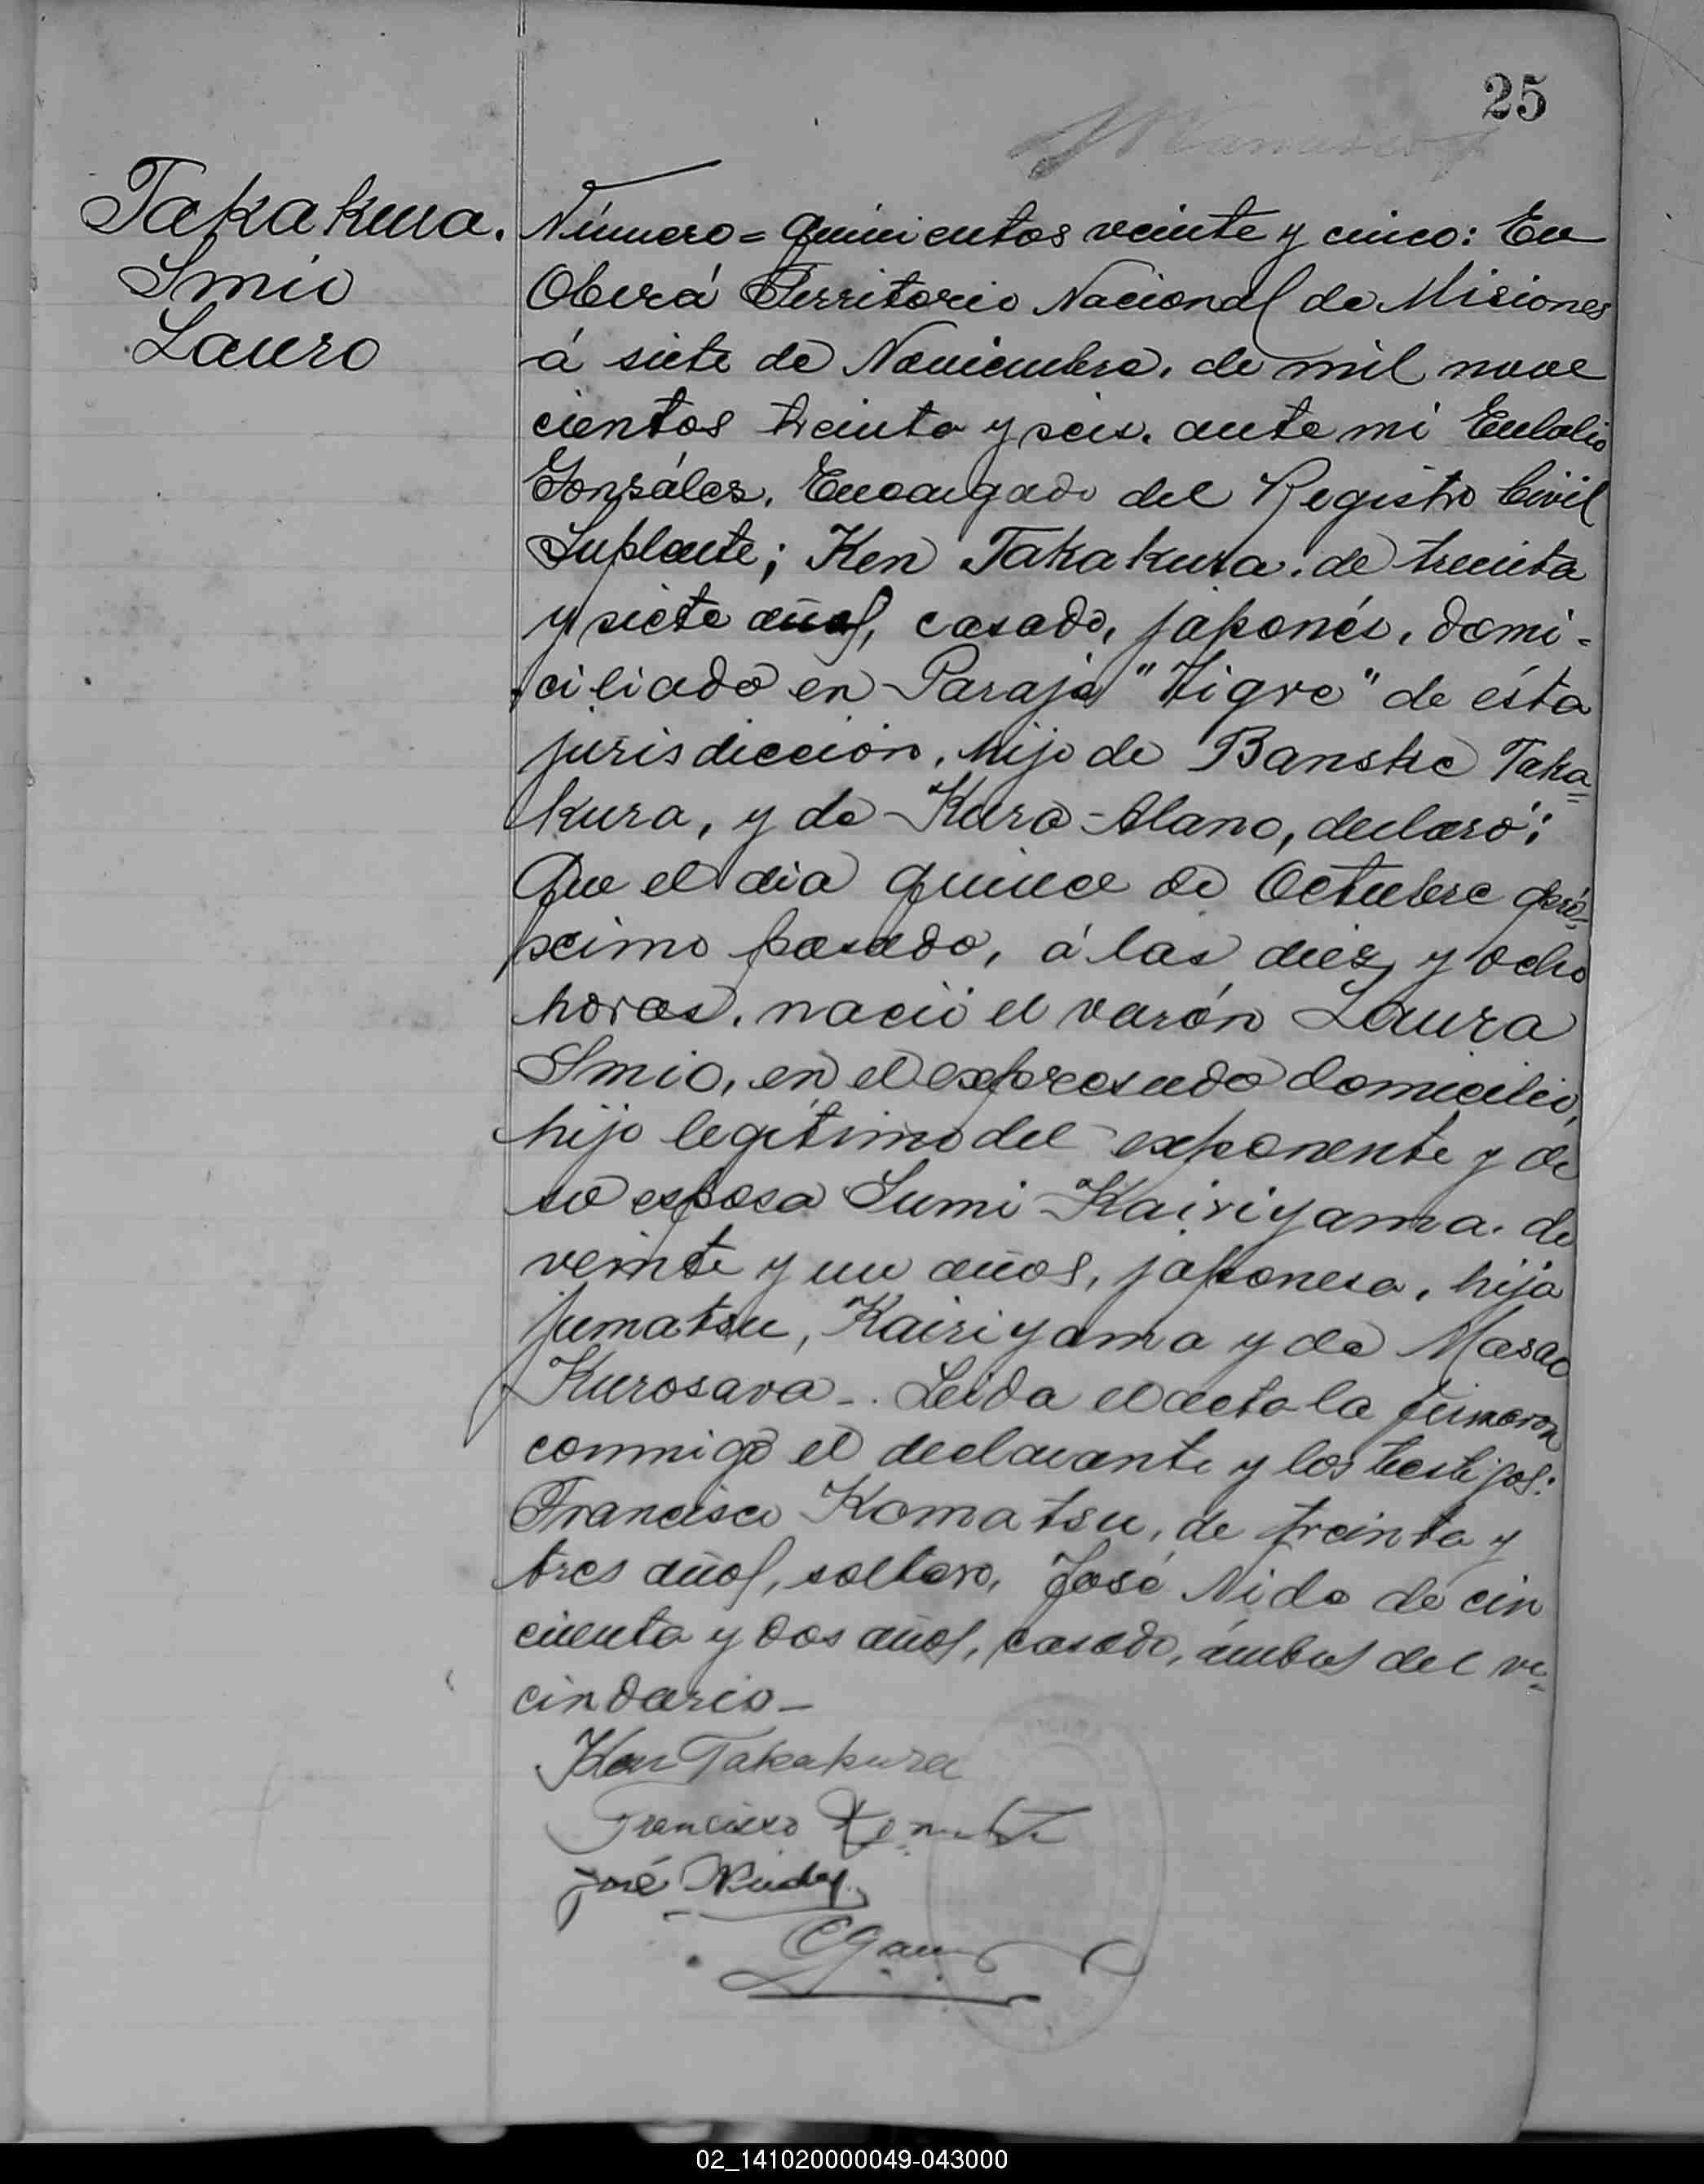 25
Takakura.
Smio
Lauro
Número = quinientos veinte y cinco: En
Oberá Territorio Nacional de Misiones
á siete de Noviembre. de mil nove
cientos treinta y seis. ante mi Eulalio
Gonzáles. Encargado del Registro Civil
Suplente; Ken Takakura. de treinta
y siete años, casado, japonés. domi-
ciliado en Paraje "Tigre" de ésta
jurisdicción, hijo de Banske Taka=
kura, y de Kura Alano, declaró:
Que el dia quince de Octubre pró=
ximo pasado, á las diez y ocho
horas. nació el varón Laura
Smio, en el expresado domicilio,
hijo legítimo del exponente y de
su esposa Sumi Kairiyama. de
veinte y un años, japonesa, hija
Jumatsu, Kairiyama y de Masao
Kurosava -. Leida el acta la firmaron
conmigo el declarante y los testigos:
Francisco Komatsu, de treinta y
tres años, soltero, José Nido de cin
cuenta y dos años, casado, ámbos del ve-
cindario -
Ken Takakura
Francisco
José
02_141020000049-043000